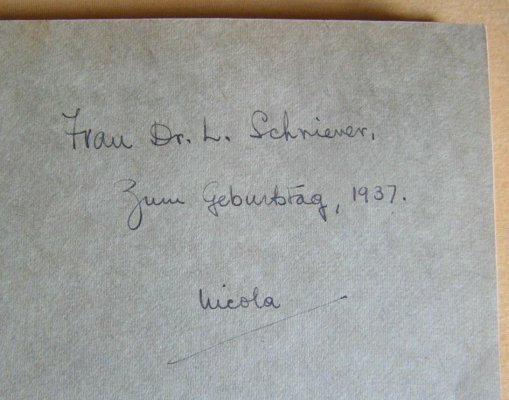 Frau Dr. L. Schriever,
Zum Geburtstag, 1937.
Nicola